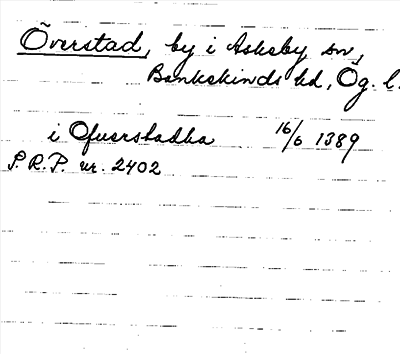 Överstad, by i Askeby sn,
Bankekinds hd, Ög. l.
i Ofuerstadha 16/6 1389
S.R.P. nr. 2402